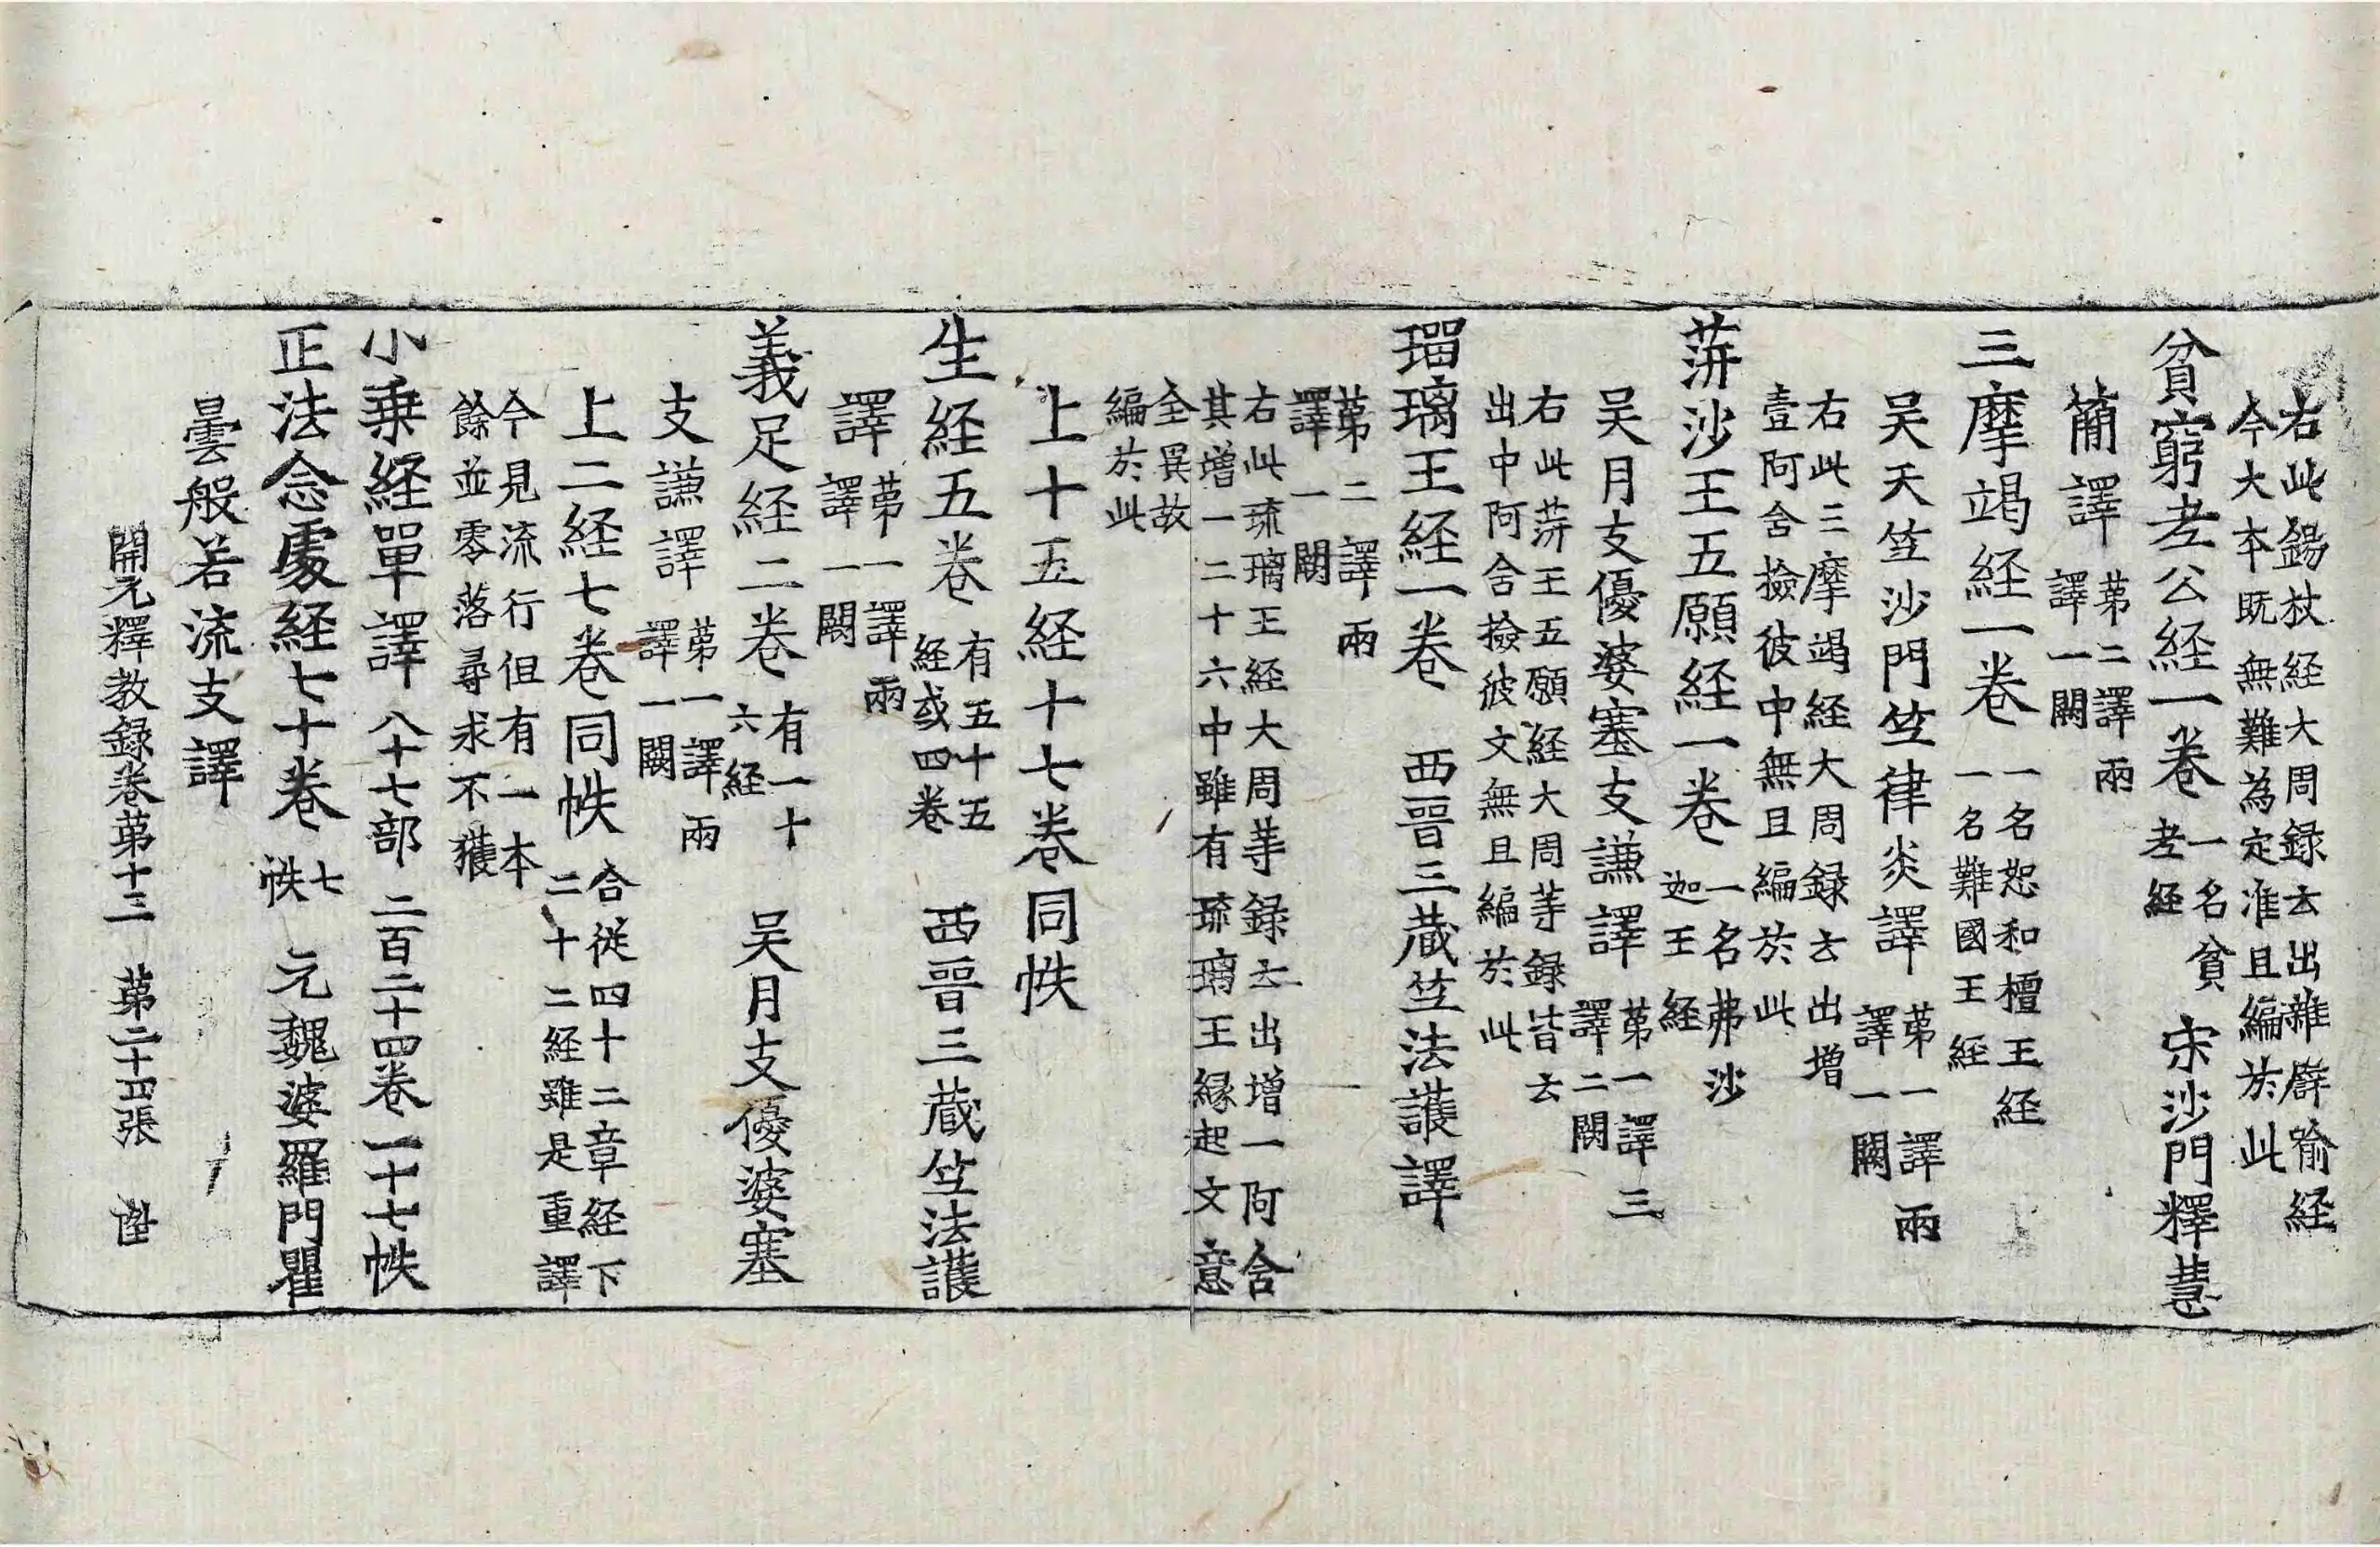 右此錫杖経大周録云出雜譬喻経
今大本既無難為定准且編於此
貧窮老公経一卷 一名貧老経 宋沙門釋慧
蕑譯 苐二譯兩譯一闕
三摩竭経一卷 一名恕和檀王経一名難國王経
吴天竺沙門竺律炎譯 苐一譯兩譯一闕
右此三摩竭経大周録云出増
壹阿含撿彼中無且編於此
蓱沙王五願経一卷 一名弗沙迦王経
吴月支優婆塞支謙譯 苐一譯三譯二闕
右此蓱王五願経大周等録皆云
出中阿含撿彼文無且編於此
瑠璃王経一卷 西晉三蔵竺法護譯
苐二譯兩譯一闕
右此琉璃王経大周等録云出増一阿含
其增一二十六中雖有琉璃王縁起文意
全異故
編於此
上十五経十七卷同帙
生経五卷 有五十五経或四卷 西晉三蔵竺法護
譯 苐一譯兩譯一闕
義足経二卷 有一十六経 吴月支優婆塞
支謙譯 苐一譯兩譯一闕
上二経七卷同帙 合從四十二章経下二十二経雖是重譯
今見流行但有一本
餘並零落尋求不獲
小乗経單譯 八十七部 二百二十四卷 一十七帙
正法念處経七十卷 七帙 元魏婆羅門瞿
曇般若流支譯
開元釋教録卷苐十三 苐二十四張